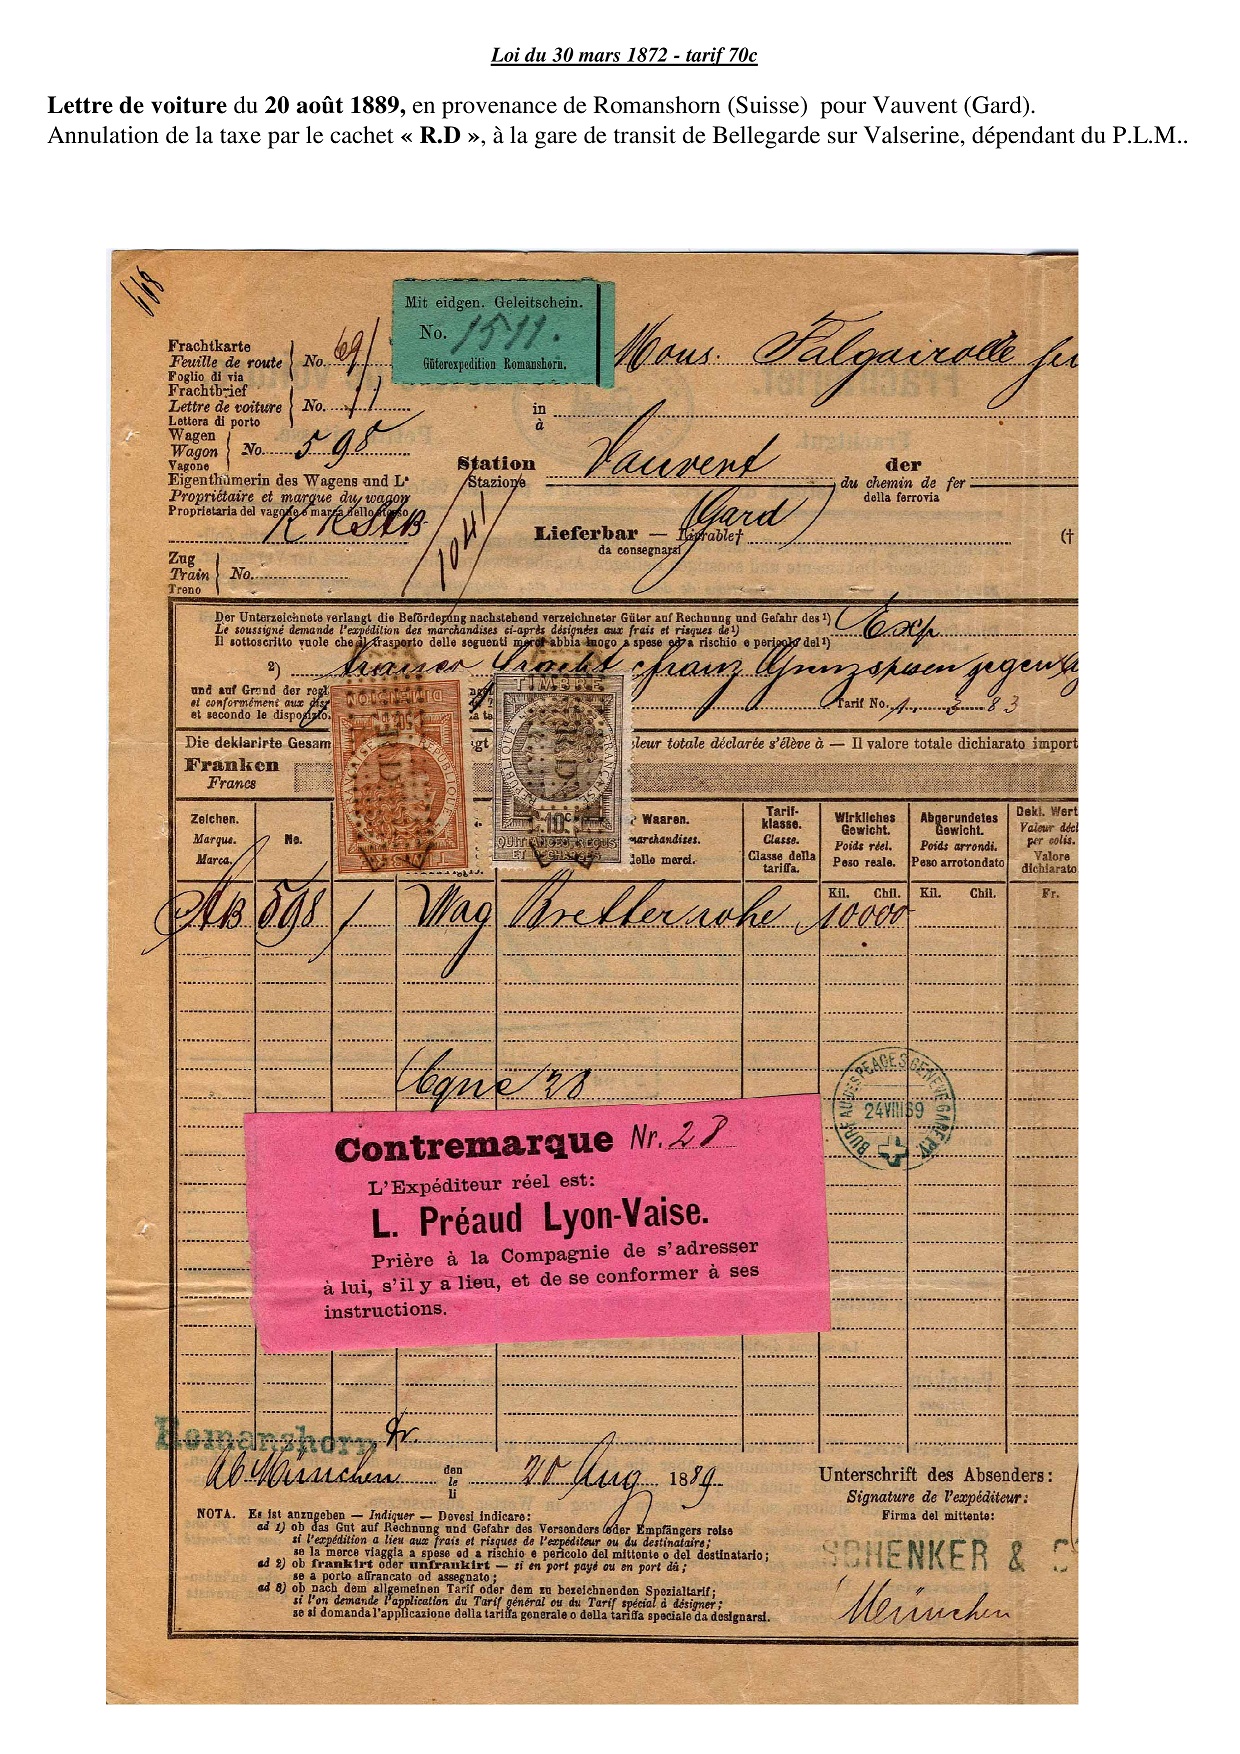 Loi du 30 mars 1872 - tarif 70c
Lettre de voiture du 20 août 1889, en provenance de Romanshorn (Suisse) pour Vauvent (Gard).
Annulation de la taxe par le cachet « R.D », à la gare de transit de Bellegarde sur Valserine, dépendant du P.L.M..
Mit eidgen. Geleitschein.
No. 1511.
Güterexpedition Romanshorn.
Frachtkarte
Feuille de route No. 69
Foglio di via
Frachtbrief
Lettre de voiture No. 11
Lettera di porto
Mons. Falgairolle
in
à
Wagen
Wagon No. 598
Vagone
Station Vauvent der
Stazione du chemin de fer
della ferrovia
Eigenthümerin des Wagens und
Propriétaire et marque du wagon
Proprietaria del vagone e marca dello stesso
K K StB
1041
Gard
Lieferbar — Livrable†
da consegnarsi
(†
Zug
Train No.
Treno
Der Unterzeichnete verlangt die Beförderung nachstehend verzeichneter Güter auf Rechnung und Gefahr des 1) Exp
Le soussigné demande l'expédition des marchandises ci-après désignées aux frais et risques de 1)
Il sottoscritto vuole che il trasporto delle seguenti merci abbia luogo a spese ed a rischio e pericolo del 1)
2) franco Fracht franz Grenze gegen
und auf Grund der regl
et conformément aux dis
et secondo le disposizio.
Tarif No. 1. 3 83
DIMENSION
RÉPUBLIQUE FRANÇAISE
TIMBRE
RÉPUBLIQUE FRANÇAISE
10c
QUITTANCES REÇUS
ET DÉCHARGES
Die deklarirte Gesam gt leur totale déclarée s'élève à — Il valore totale dichiarato import
Franken
Francs
Zeichen.
Marque.
Marca.
No.
Waaren.
marchandises.
dello merci.
Tarif-
klasse.
Classe.
Classe della
tariffa.
Wirkliches
Gewicht.
Poids réel.
Peso reale.
Abgerundetes
Gewicht.
Poids arrondi.
Peso arrotondato
Dekl. Wert
Valeur décl
per colis.
Valore
dichiarato
Kil. Chil. Kil. Chil. Fr.
StB 598 1 Wag Bretter rohe 10000
28
BUREAU DES PEAGES GENEVE GARE P.V.
24 VIII 89
Contremarque Nr. 28
L'Expéditeur réel est:
L. Préaud Lyon-Vaise.
Prière à la Compagnie de s'adresser
à lui, s'il y a lieu, et de se conformer à ses
instructions.
Romanshorn
Ab München den 20 Aug 1889
le
li
Unterschrift des Absenders:
Signature de l'expéditeur:
Firma del mittente:
SCHENKER & C
München
NOTA. Es ist anzugeben — Indiquer — Devesi indicare:
ad 1) ob das Gut auf Rechnung und Gefahr des Versenders oder Empfängers reise
si l'expédition a lieu aux frais et risques de l'expéditeur ou du destinataire;
se la merce viaggia a spese ed a rischio e pericolo del mittente o del destinatario;
ad 2) ob frankirt oder unfrankirt — si en port payé ou en port dû;
se a porto affrancato od assegnato;
ad 3) ob nach dem allgemeinen Tarif oder dem zu bezeichnenden Spezialtarif;
si l'on demande l'application du Tarif général ou du Tarif spécial à désigner;
se si domanda l'applicazione della tariffa generale o della tariffa speciale da designarsi.